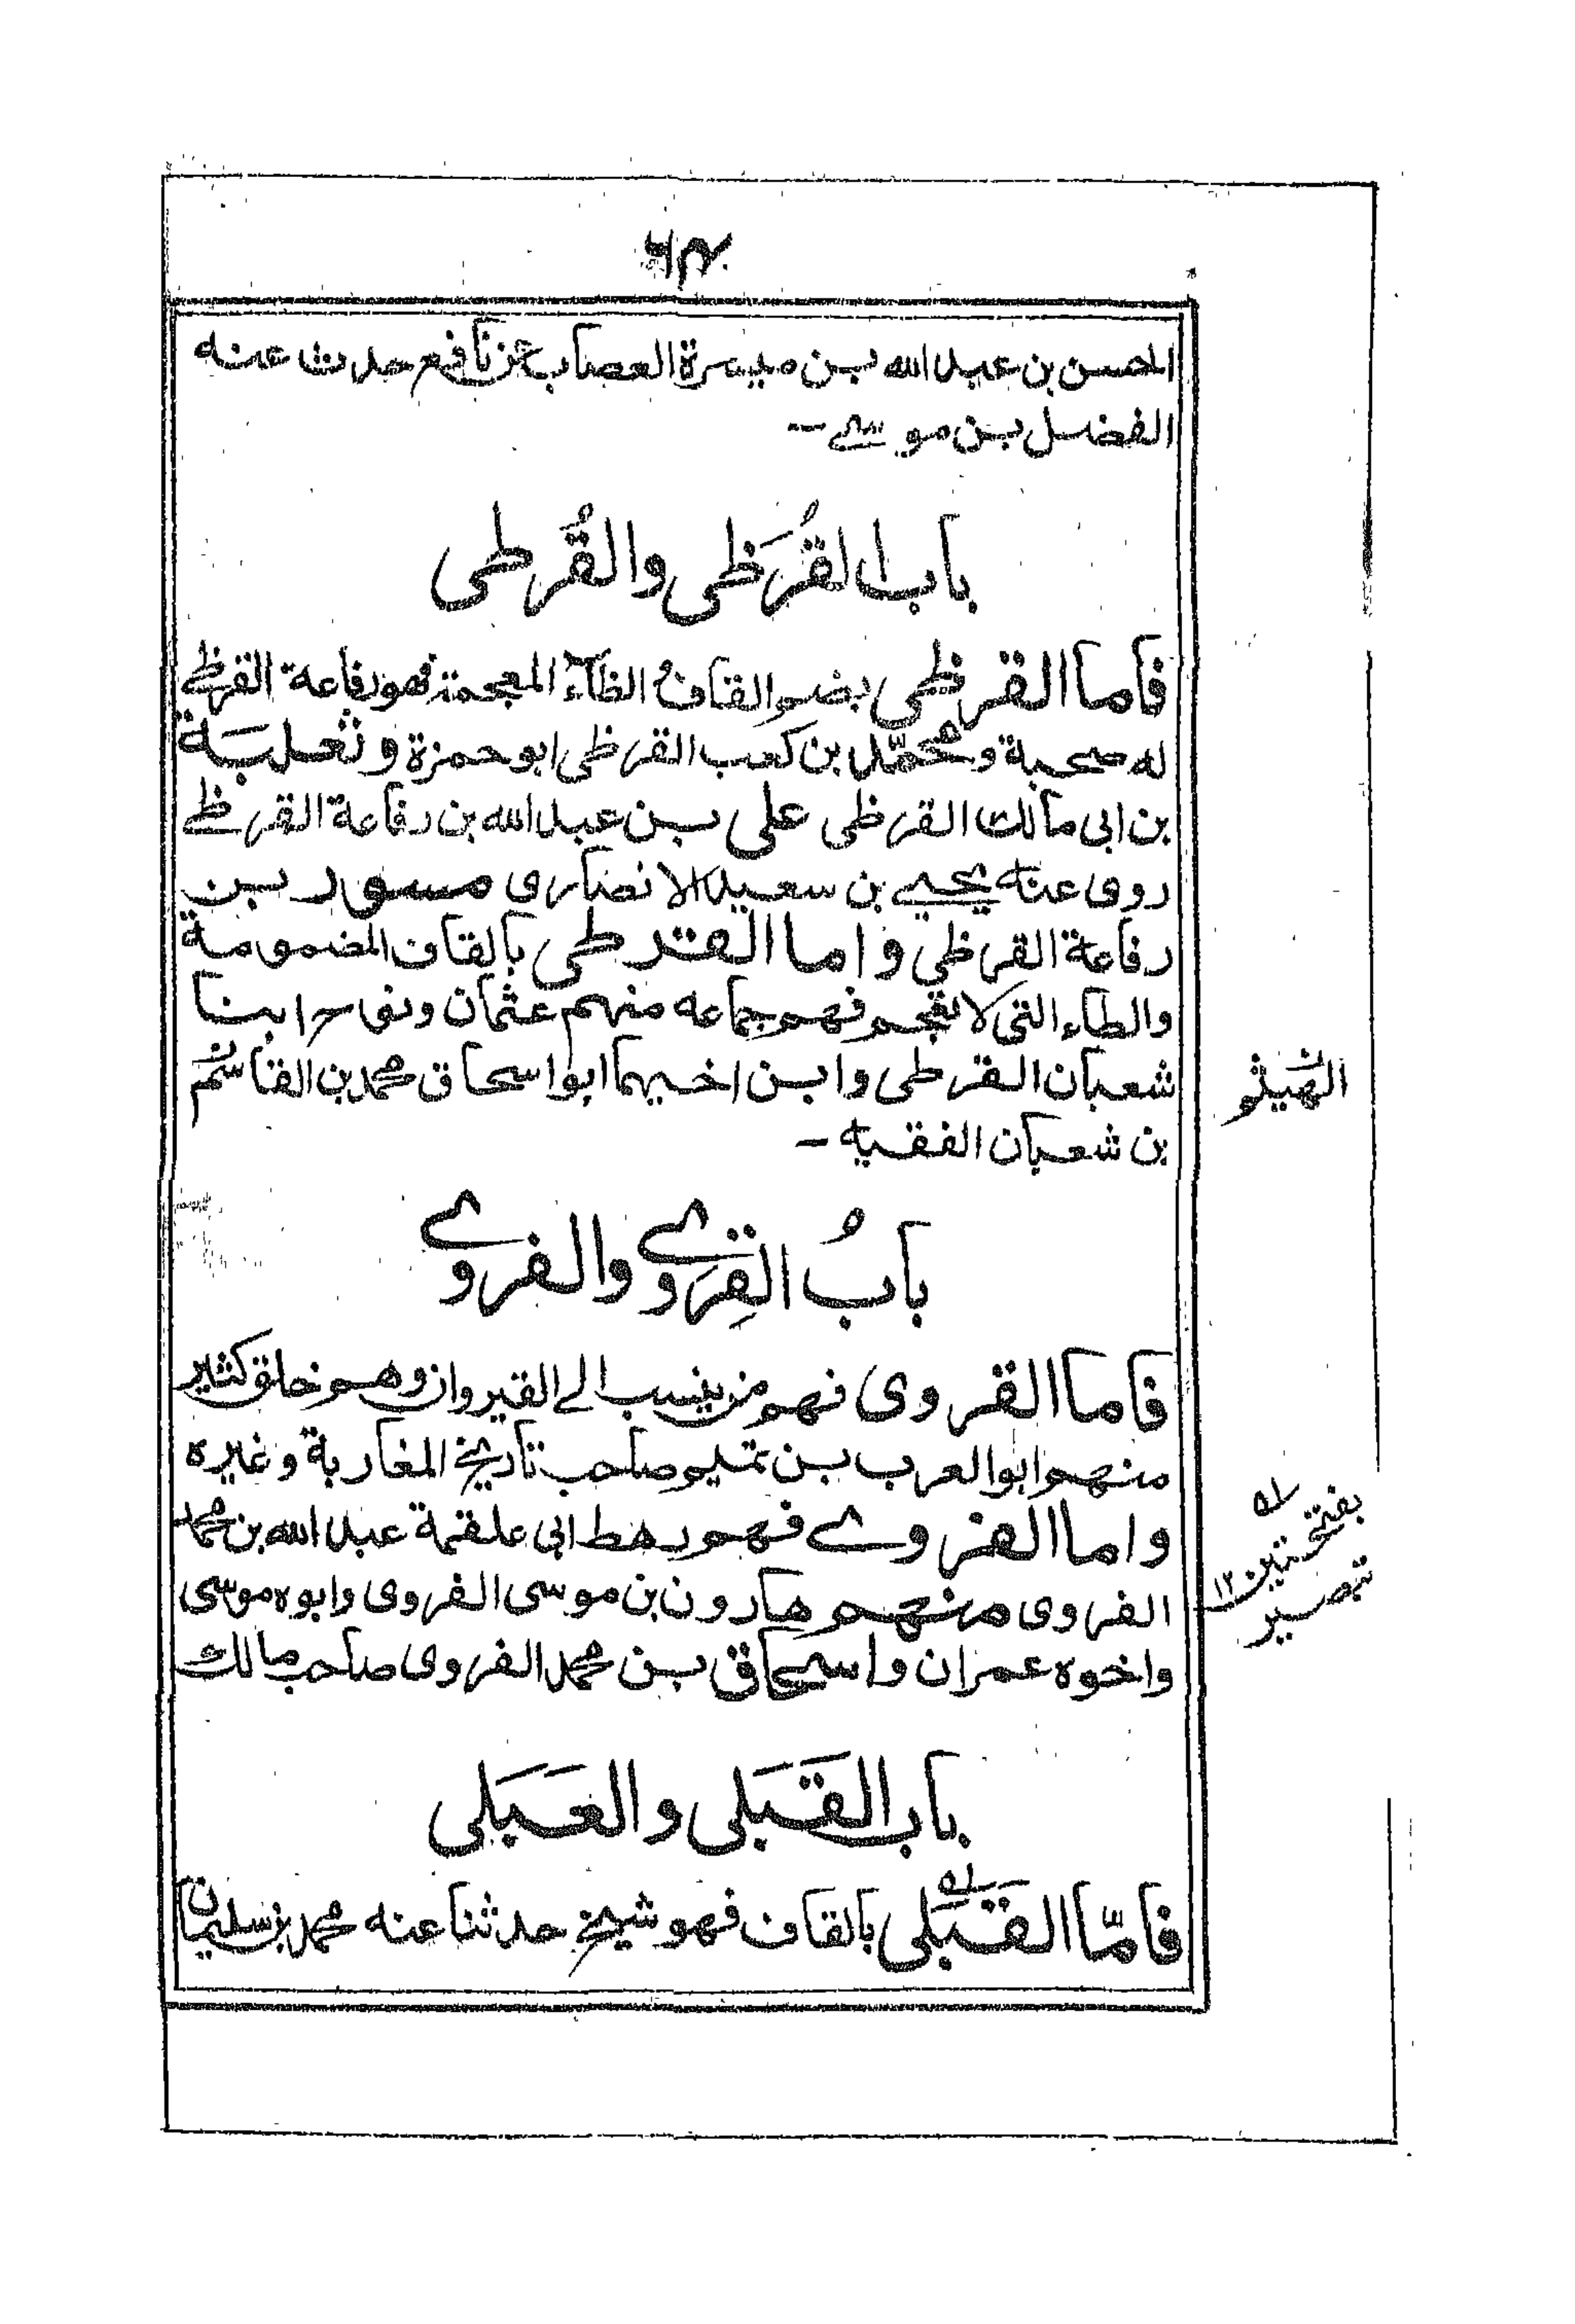 الحسن بن عبد الله بن ميسرة العصاب عن نافع حدث عنه
الفضل بن موسے -
باب القُرَظی والقُرطی
فاما القرظی بضم القاف و الظاء المعجمة فهو رفاعة القرظے
له صحبة و محمّد بن كعب القرظی ابو حمزة و ثعلبَة
بن ابی مالك القرظی علی بن عبد الله بن رفاعة القرظے
روی عنه یحیے بن سعيد الانصاری مسور بن
رفاعة القرظی و اما القرطی بالقاف المضمومة
والطاء التی لا تعجم فهم جماعه منهم عثمان و ابنا
شعبان القرطی وابن اخيهما ابو اسحاق محمد بن القاسم
بن شعبان الفقيه -
بابُ القِرَوے والفروے
فاما القروی فهو من ينسب الے القيروان وهم خلق كثير
منهم ابو العرب بن تميم صاحب تاريخ المغاربة وغيره
و اما الفروے فهم رهط ابی علقمة عبد الله بن محمد
الفروی منهم هارون بن موسی الفروی وابوه موسی
واخوه عمران و اسحاق بن محمد الفروی صاحب مالك
باب القَبَلی و العَبَلی
فامّا القَبَلی بالقاف فهو شيخ حدثنا عنه محمد بن سليمان
الهيثم
بفتحتين ١٢
تبصير